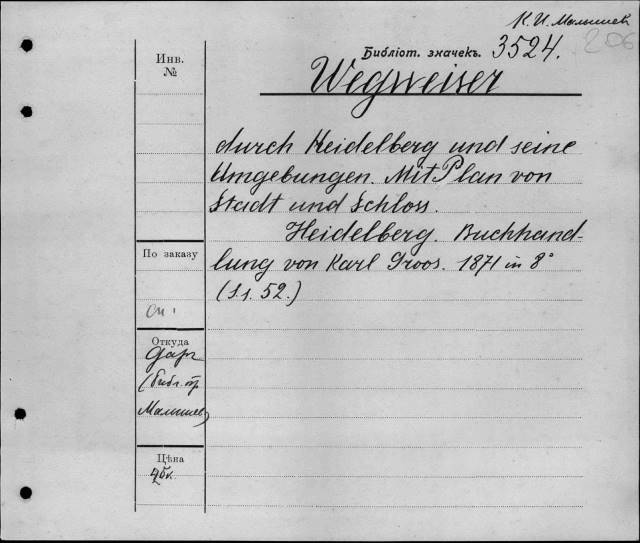 К. И. Малышев
206
Библіот. значекъ. 3524.
Инв.
№
Wegweiser
durch Heidelberg und seine
Umgebungen. Mit Plan von
Stadt und Schloss.
Heidelberg. Buchhand-
lung von Karl Groos. 1871 in 8°
(S.s. 52.)
По заказу
Откуда
Даръ
(библ. пр.
Малышев)
Цѣна